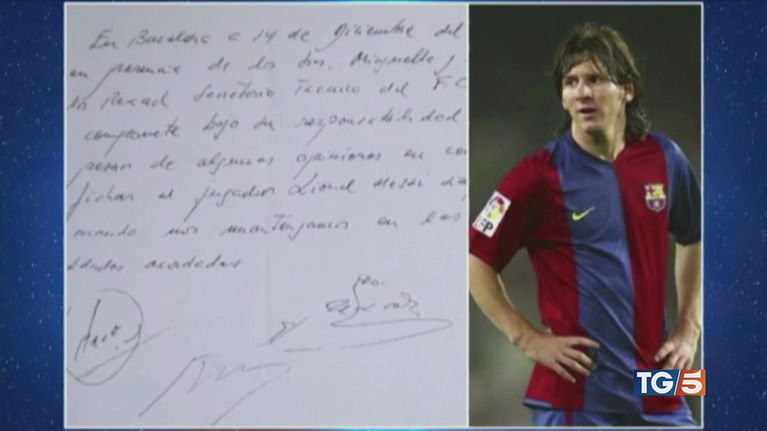 En Barcelona a 14 de Diciembre del
en presencia de los Srs. Minguella
Rexach Secretario Tecnico del F.C
compromete bajo su responsabilidad
pesar de algunas opiniones en
fichar al jugador Lionel Messi
cuando nos mantengamos en las
acordadas
LFP
TG5